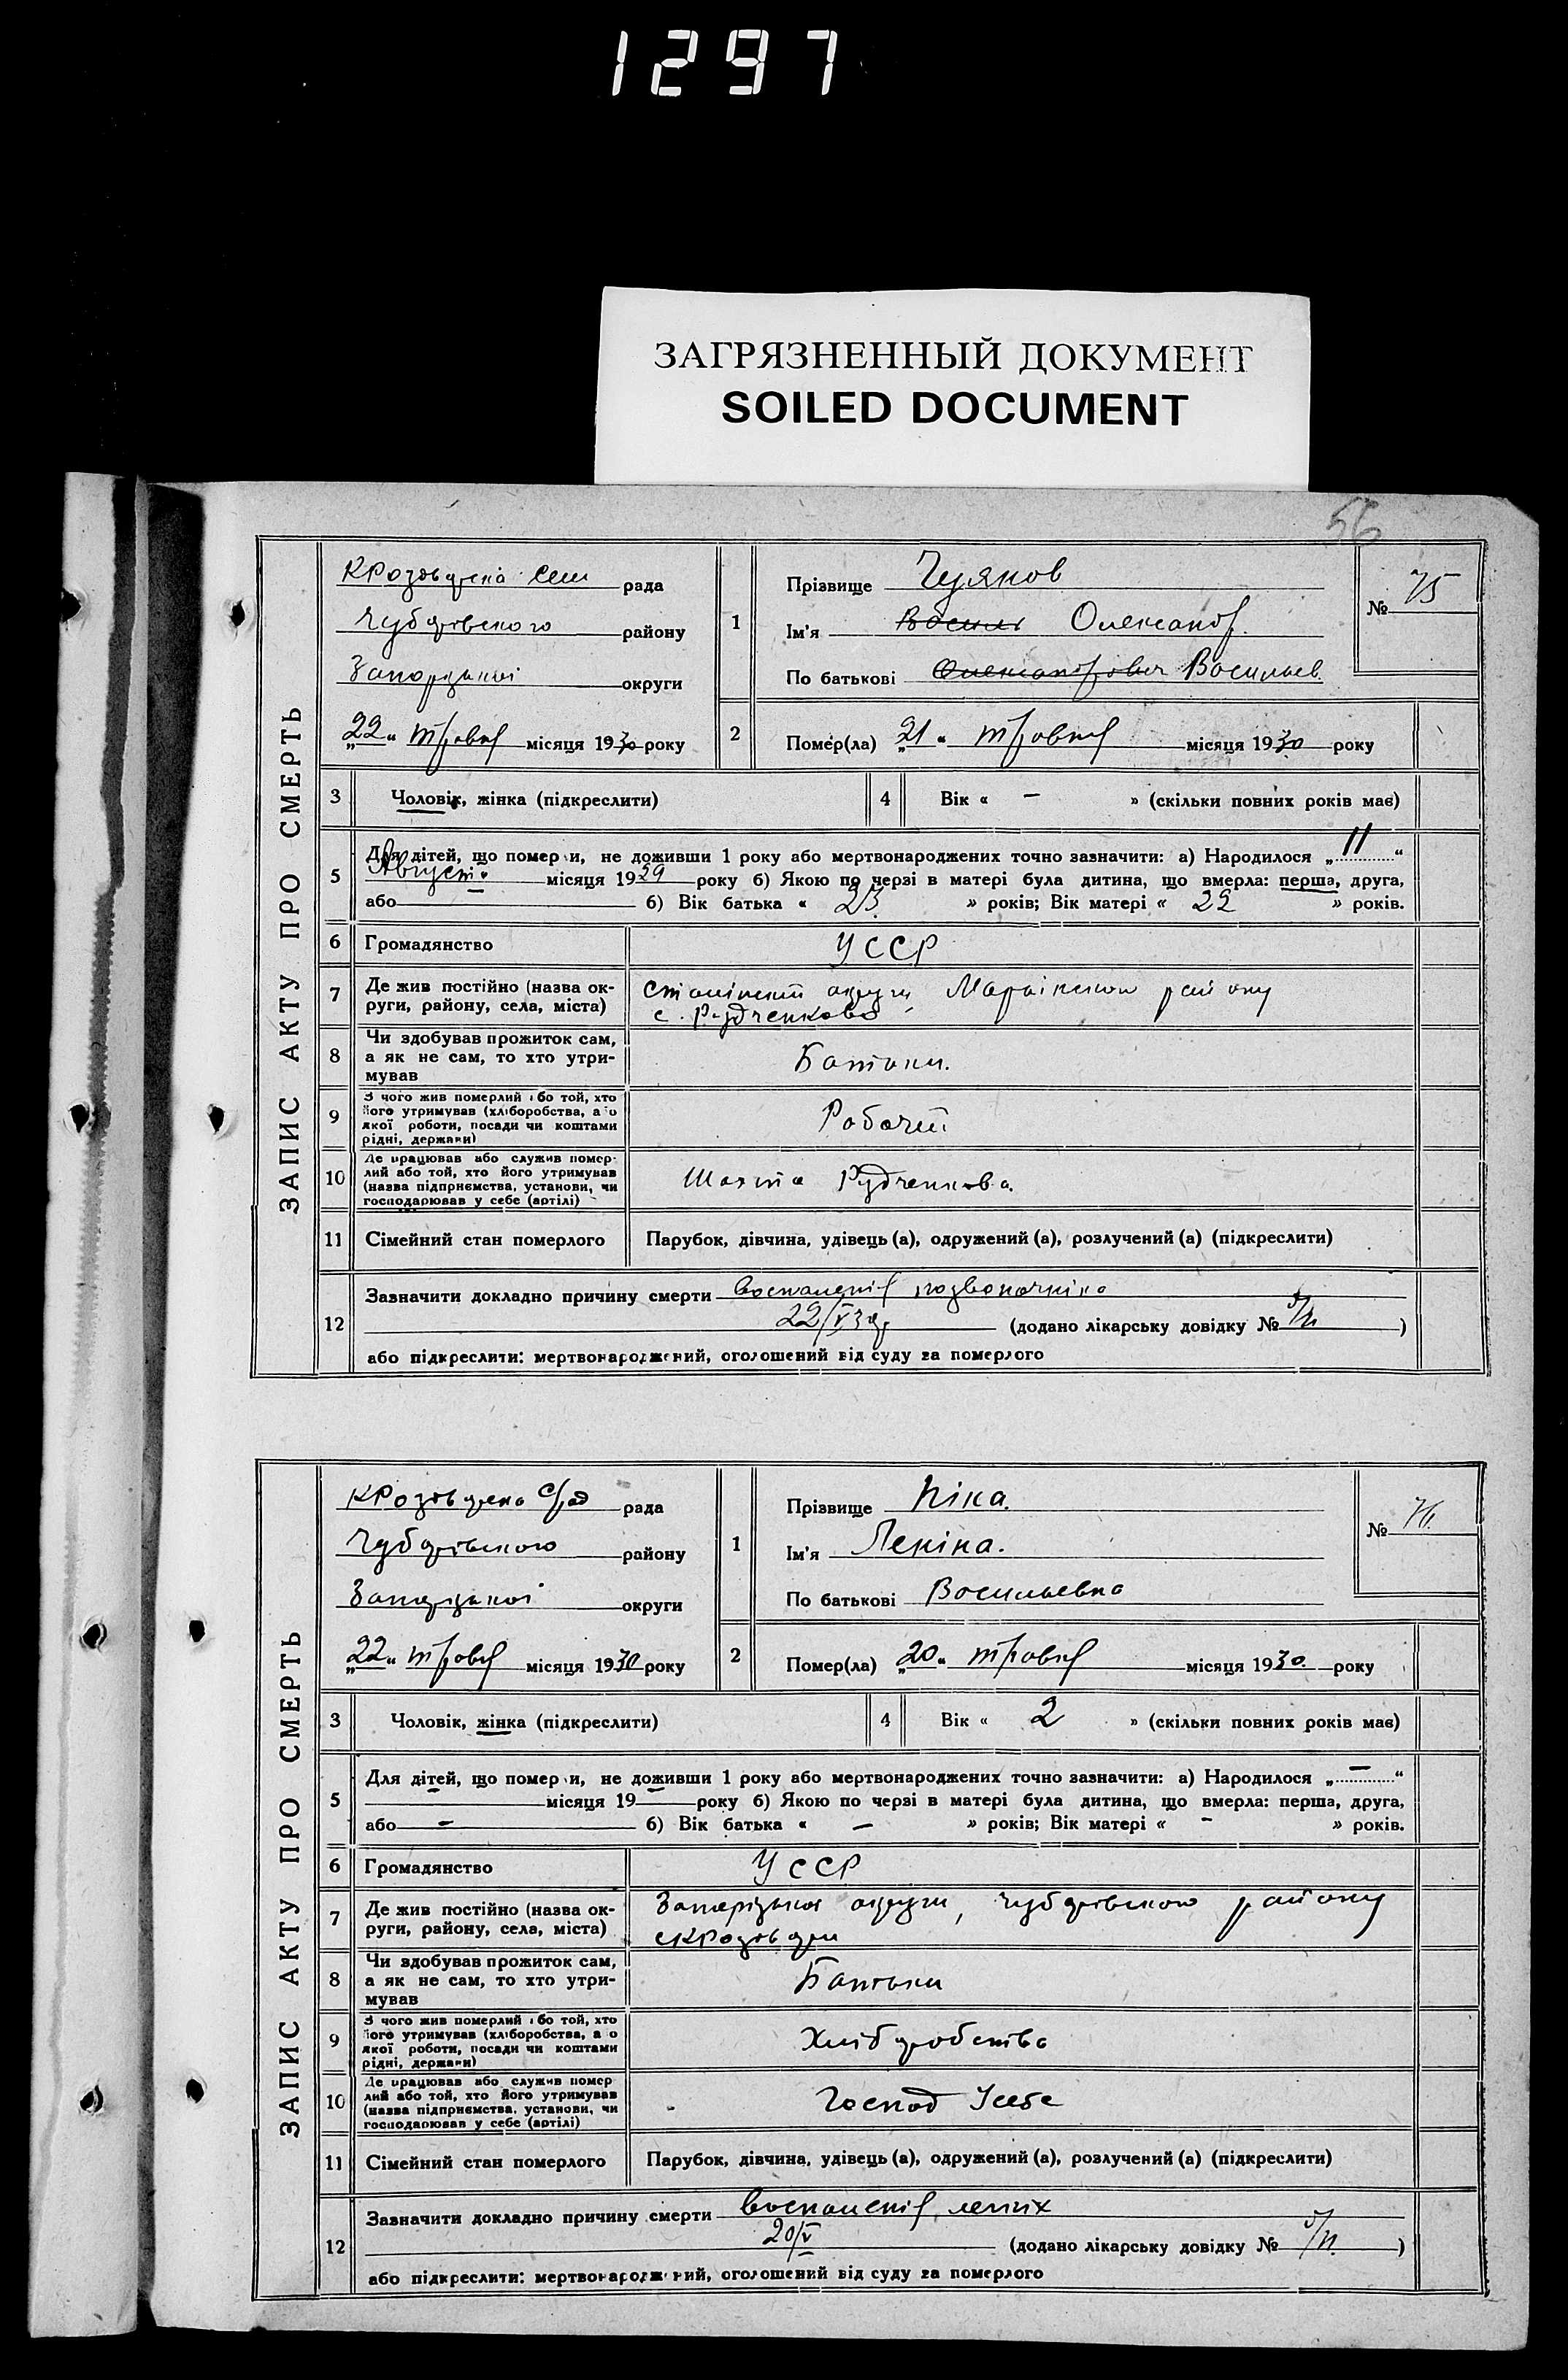 1297
ЗАГРЯЗНЕННЫЙ ДОКУМЕНТ
SOILED DOCUMENT
56
ЗАПИС АКТУ ПРО СМЕРТЬ
рада
району
Запорізької округи
„22“ травня місяця 1930 року
1
Прізвище
Ім'я Василь Олександр.
По батькові Олександрович Васильев.
№ 75
2
Помер(ла) „21“ травня місяця 1930 року
3 Чоловік, жінка (підкреслити)
4 Вік « – » (скільки повних років має)
5 Для дітей, що померли, не доживши 1 року або мертвонароджених точно зазначити: а) Народилося „11“
Август місяця 1929 року б) Якою по черзі в матері була дитина, що вмерла: перша, друга,
або б) Вік батька « 23 » років; Вік матері « 22 » років.
6 Громадянство УССР
7 Де жив постійно (назва округи, району, села, міста) округи, району
с. Рудченково
8 Чи здобував прожиток сам, а як не сам, то хто утримував Батьки.
9 З чого жив померлий або той, хто його утримував (хліборобства, або якої роботи, посади чи коштами рідні, держави) Робочий
10 Де працював або служив померлий або той, хто його утримував (назва підприємства, установи, чи господарював у себе (артілі) Шахта Рудченкова.
11 Сімейний стан померлого Парубок, дівчина, удівець(а), одружений(а), розлучений(а) (підкреслити)
12 Зазначити докладно причину смерти воспаления позвоночника
22/V 30р (додано лікарську довідку № )
або підкреслити: мертвонароджений, оголошений від суду за померлого
ЗАПИС АКТУ ПРО СМЕРТЬ
рада
району
Запорізької округи
„22“ травня місяця 1930 року
1
Прізвище Ніка.
Ім'я Леніна.
По батькові Васильевна
№ 76.
2
Помер(ла) „20“ травня місяця 1930 року
3 Чоловік, жінка (підкреслити)
4 Вік « 2 » (скільки повних років має)
5 Для дітей, що померли, не доживши 1 року або мертвонароджених точно зазначити: а) Народилося „ – “
– місяця 19 – року б) Якою по черзі в матері була дитина, що вмерла: перша, друга,
або – б) Вік батька « – » років; Вік матері « – » років.
6 Громадянство УССР
7 Де жив постійно (назва округи, району, села, міста) Запорізької округи, району
8 Чи здобував прожиток сам, а як не сам, то хто утримував Батьки
9 З чого жив померлий або той, хто його утримував (хліборобства, або якої роботи, посади чи коштами рідні, держави) Хліборобство
10 Де працював або служив померлий або той, хто його утримував (назва підприємства, установи, чи господарював у себе (артілі) Господ Усебе
11 Сімейний стан померлого Парубок, дівчина, удівець(а), одружений(а), розлучений(а) (підкреслити)
12 Зазначити докладно причину смерти воспаления легких
20/V (додано лікарську довідку № )
або підкреслити: мертвонароджений, оголошений від суду за померлого